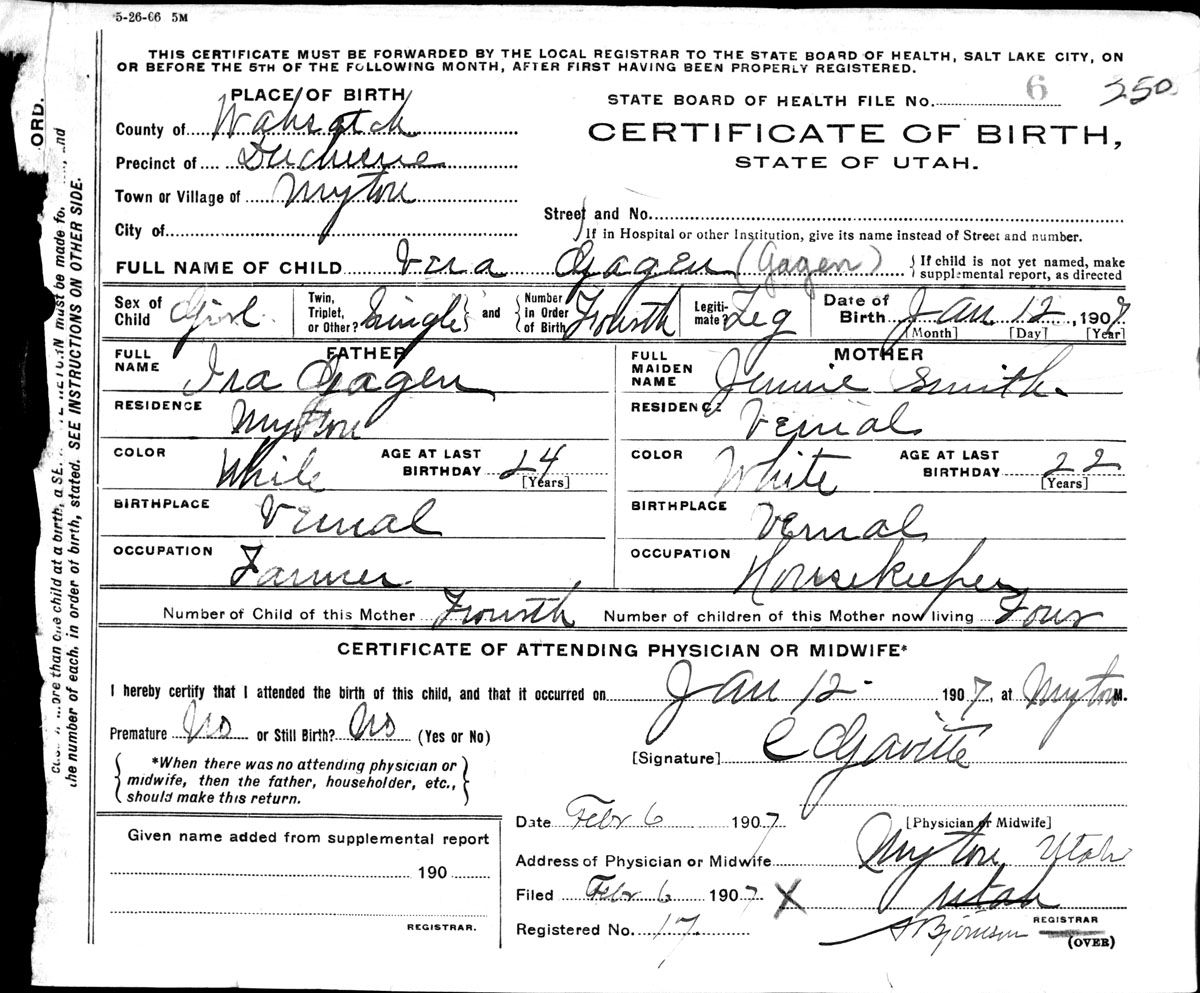 5-26-06 5M
THIS CERTIFICATE MUST BE FORWARDED BY THE LOCAL REGISTRAR TO THE STATE BOARD OF HEALTH, SALT LAKE CITY, ON
OR BEFORE THE 5TH OF THE FOLLOWING MONTH, AFTER FIRST HAVING BEEN PROPERLY REGISTERED.
PLACE OF BIRTH
County of Wahsatch
Precinct of Duchesne
Town or Village of Myton
City of
STATE BOARD OF HEALTH FILE No. 6 350
CERTIFICATE OF BIRTH,
STATE OF UTAH.
Street and No.
If in Hospital or other Institution, give its name instead of Street and number.
FULL NAME OF CHILD Vera Gagen (Gagen) { If child is not yet named, make
supplemental report, as directed
Sex of Child Girl Twin, Triplet, or Other? Single and Number in Order of Birth Fourth Legitimate? Leg Date of Birth Jan 12, 1907
[Month] [Day] [Year]
FATHER
FULL NAME Ira Gagen
RESIDENCE Myton
COLOR White AGE AT LAST BIRTHDAY 24
[Years]
BIRTHPLACE Vernal
OCCUPATION Farmer
MOTHER
FULL MAIDEN NAME Jennie Smith
RESIDENCE Vernal
COLOR White AGE AT LAST BIRTHDAY 22
[Years]
BIRTHPLACE Vernal
OCCUPATION Housekeeper
Number of Child of this Mother Fourth Number of children of this Mother now living Four
CERTIFICATE OF ATTENDING PHYSICIAN OR MIDWIFE*
I hereby certify that I attended the birth of this child, and that it occurred on Jan 12 1907, at Myton M.
Premature No or Still Birth? No (Yes or No)
[Signature]
*When there was no attending physician or
midwife, then the father, householder, etc.,
should make this return.
Date Febr 6 1907
[Physician or Midwife]
Address of Physician or Midwife Myton, Utah
Utah
Filed Febr 6 1907 X
Registered No. 17
REGISTRAR
(OVER)
Given name added from supplemental report
190
REGISTRAR.
ORD.
more than one child at a birth, a SE RETURN must be made for and
the number of each, in order of birth, stated. SEE INSTRUCTIONS ON OTHER SIDE.